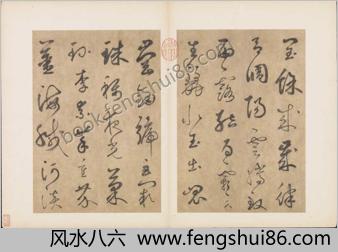 閏餘成歲律
呂調陽雲騰致
雨露結為霜金
生麗水玉出崑
崗劍號巨闕
珠稱夜光菓
珍李柰菜重芥
薑海鹹河淡
风水八六 www.fengshui86.com